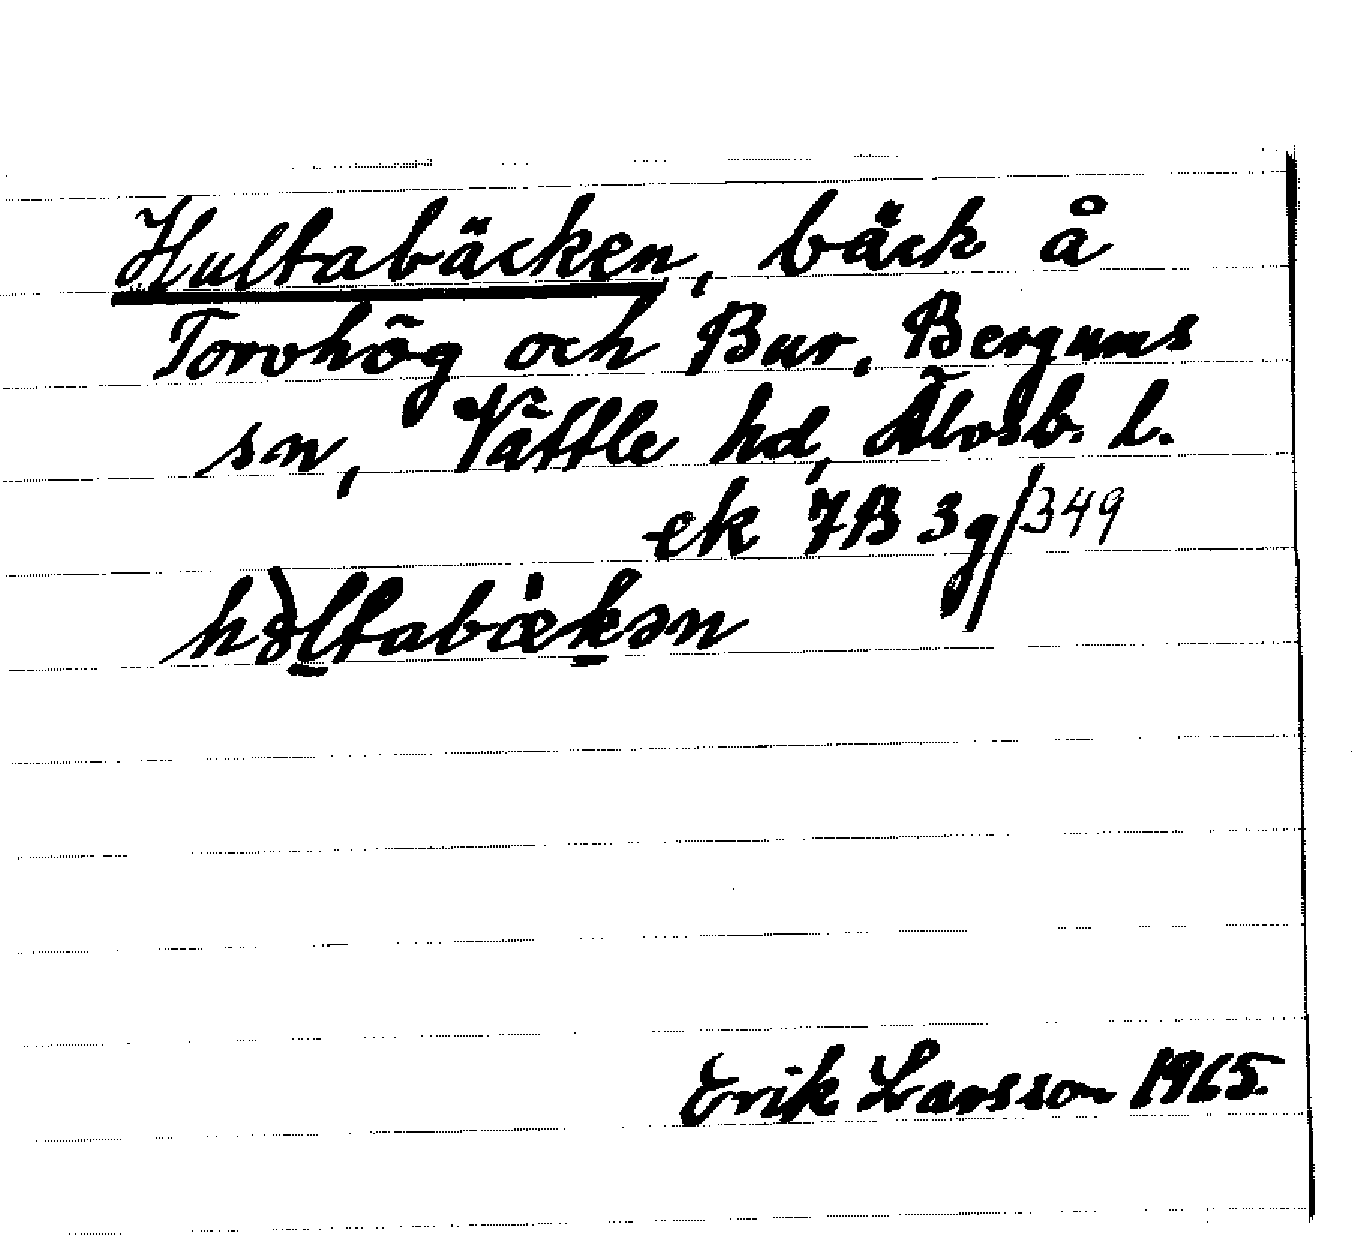 Hultabäcken, bäck å
Torvhög och Bur, Bergums
sn, Vättle hd, Älvsb. l.
ek 7B 3g/349
hòl̠tabæk̠ən
Erik Larsson 1965.